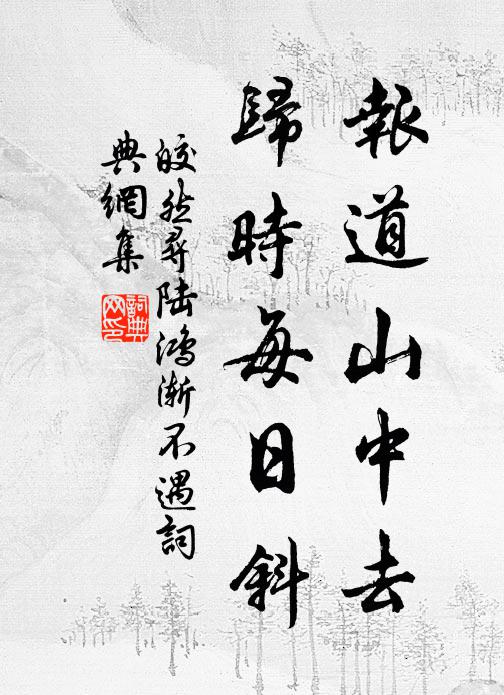 報道山中去
歸時每日斜
皎然尋陸鴻漸不遇詞
典網集
詞典
网印